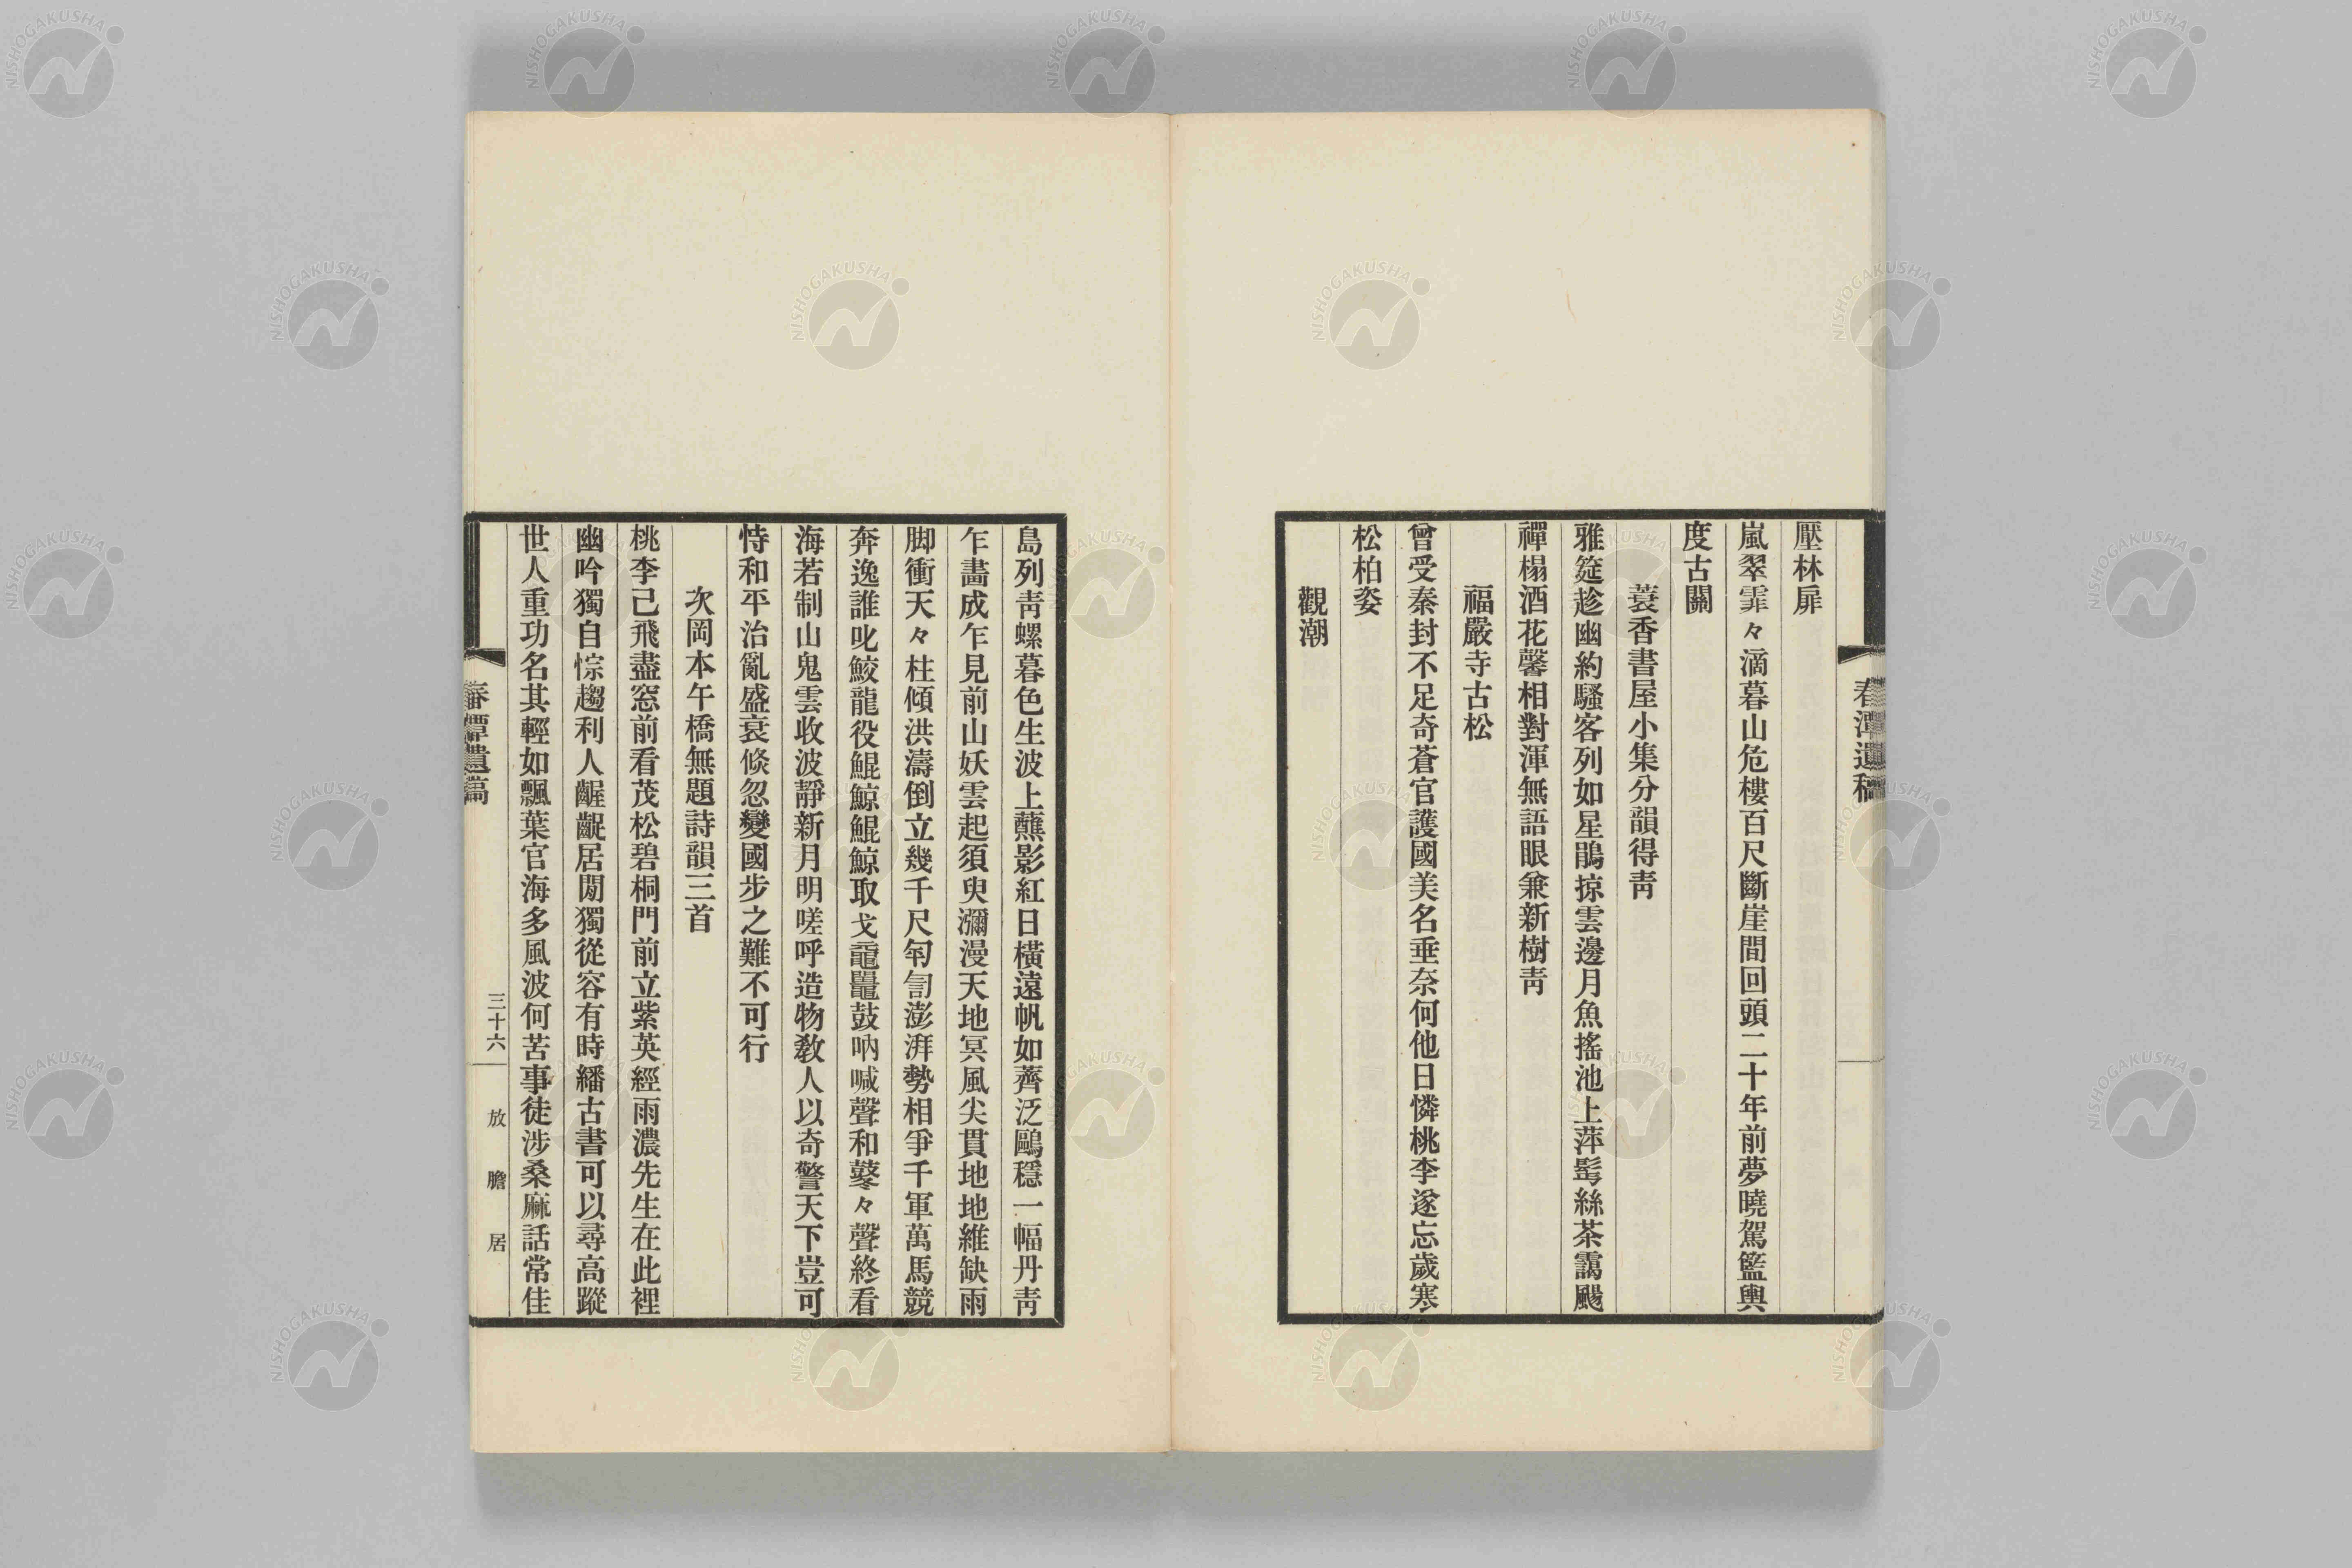 春潭遺稿
壓林扉
嵐翠霏々滴暮山危樓百尺斷崖間回頭二十年前夢曉駕籃輿
度古關
蓑香書屋小集分韻得靑
雅筵趁幽約騷客列如星鵑掠雲邊月魚搖池上萍髩絲茶靄颺
禪榻酒花馨相對渾無語眼兼新樹靑
福嚴寺古松
曾受秦封不足奇蒼官護國美名垂奈何他日憐桃李遂忘歲寒
松柏姿
觀潮
島列靑螺暮色生波上蘸影紅日橫遠帆如薺泛鷗穩一幅丹靑
乍畵成乍見前山妖雲起須臾瀰漫天地冥風尖貫地地維缺雨
脚衝天々柱傾洪濤倒立幾千尺訇訇澎湃勢相爭千軍萬馬競
奔逸誰叱鮫龍役鯤鯨鯤鯨取戈黿鼉鼓吶喊聲和鼕々聲終看
海若制山鬼雲收波靜新月明嗟呼造物敎人以奇警天下豈可
恃和平治亂盛衰倐忽變國步之難不可行
次岡本午橋無題詩韻三首
桃李己飛盡窓前看茂松碧桐門前立紫英經雨濃先生在此裡
幽吟獨自悰趨利人齷齪居閒獨從容有時繙古書可以尋高蹤
世人重功名其輕如飄葉官海多風波何苦事徒涉桑麻話常佳
春潭遺稿
三十六
放膽居
NISHOGAKUSHA